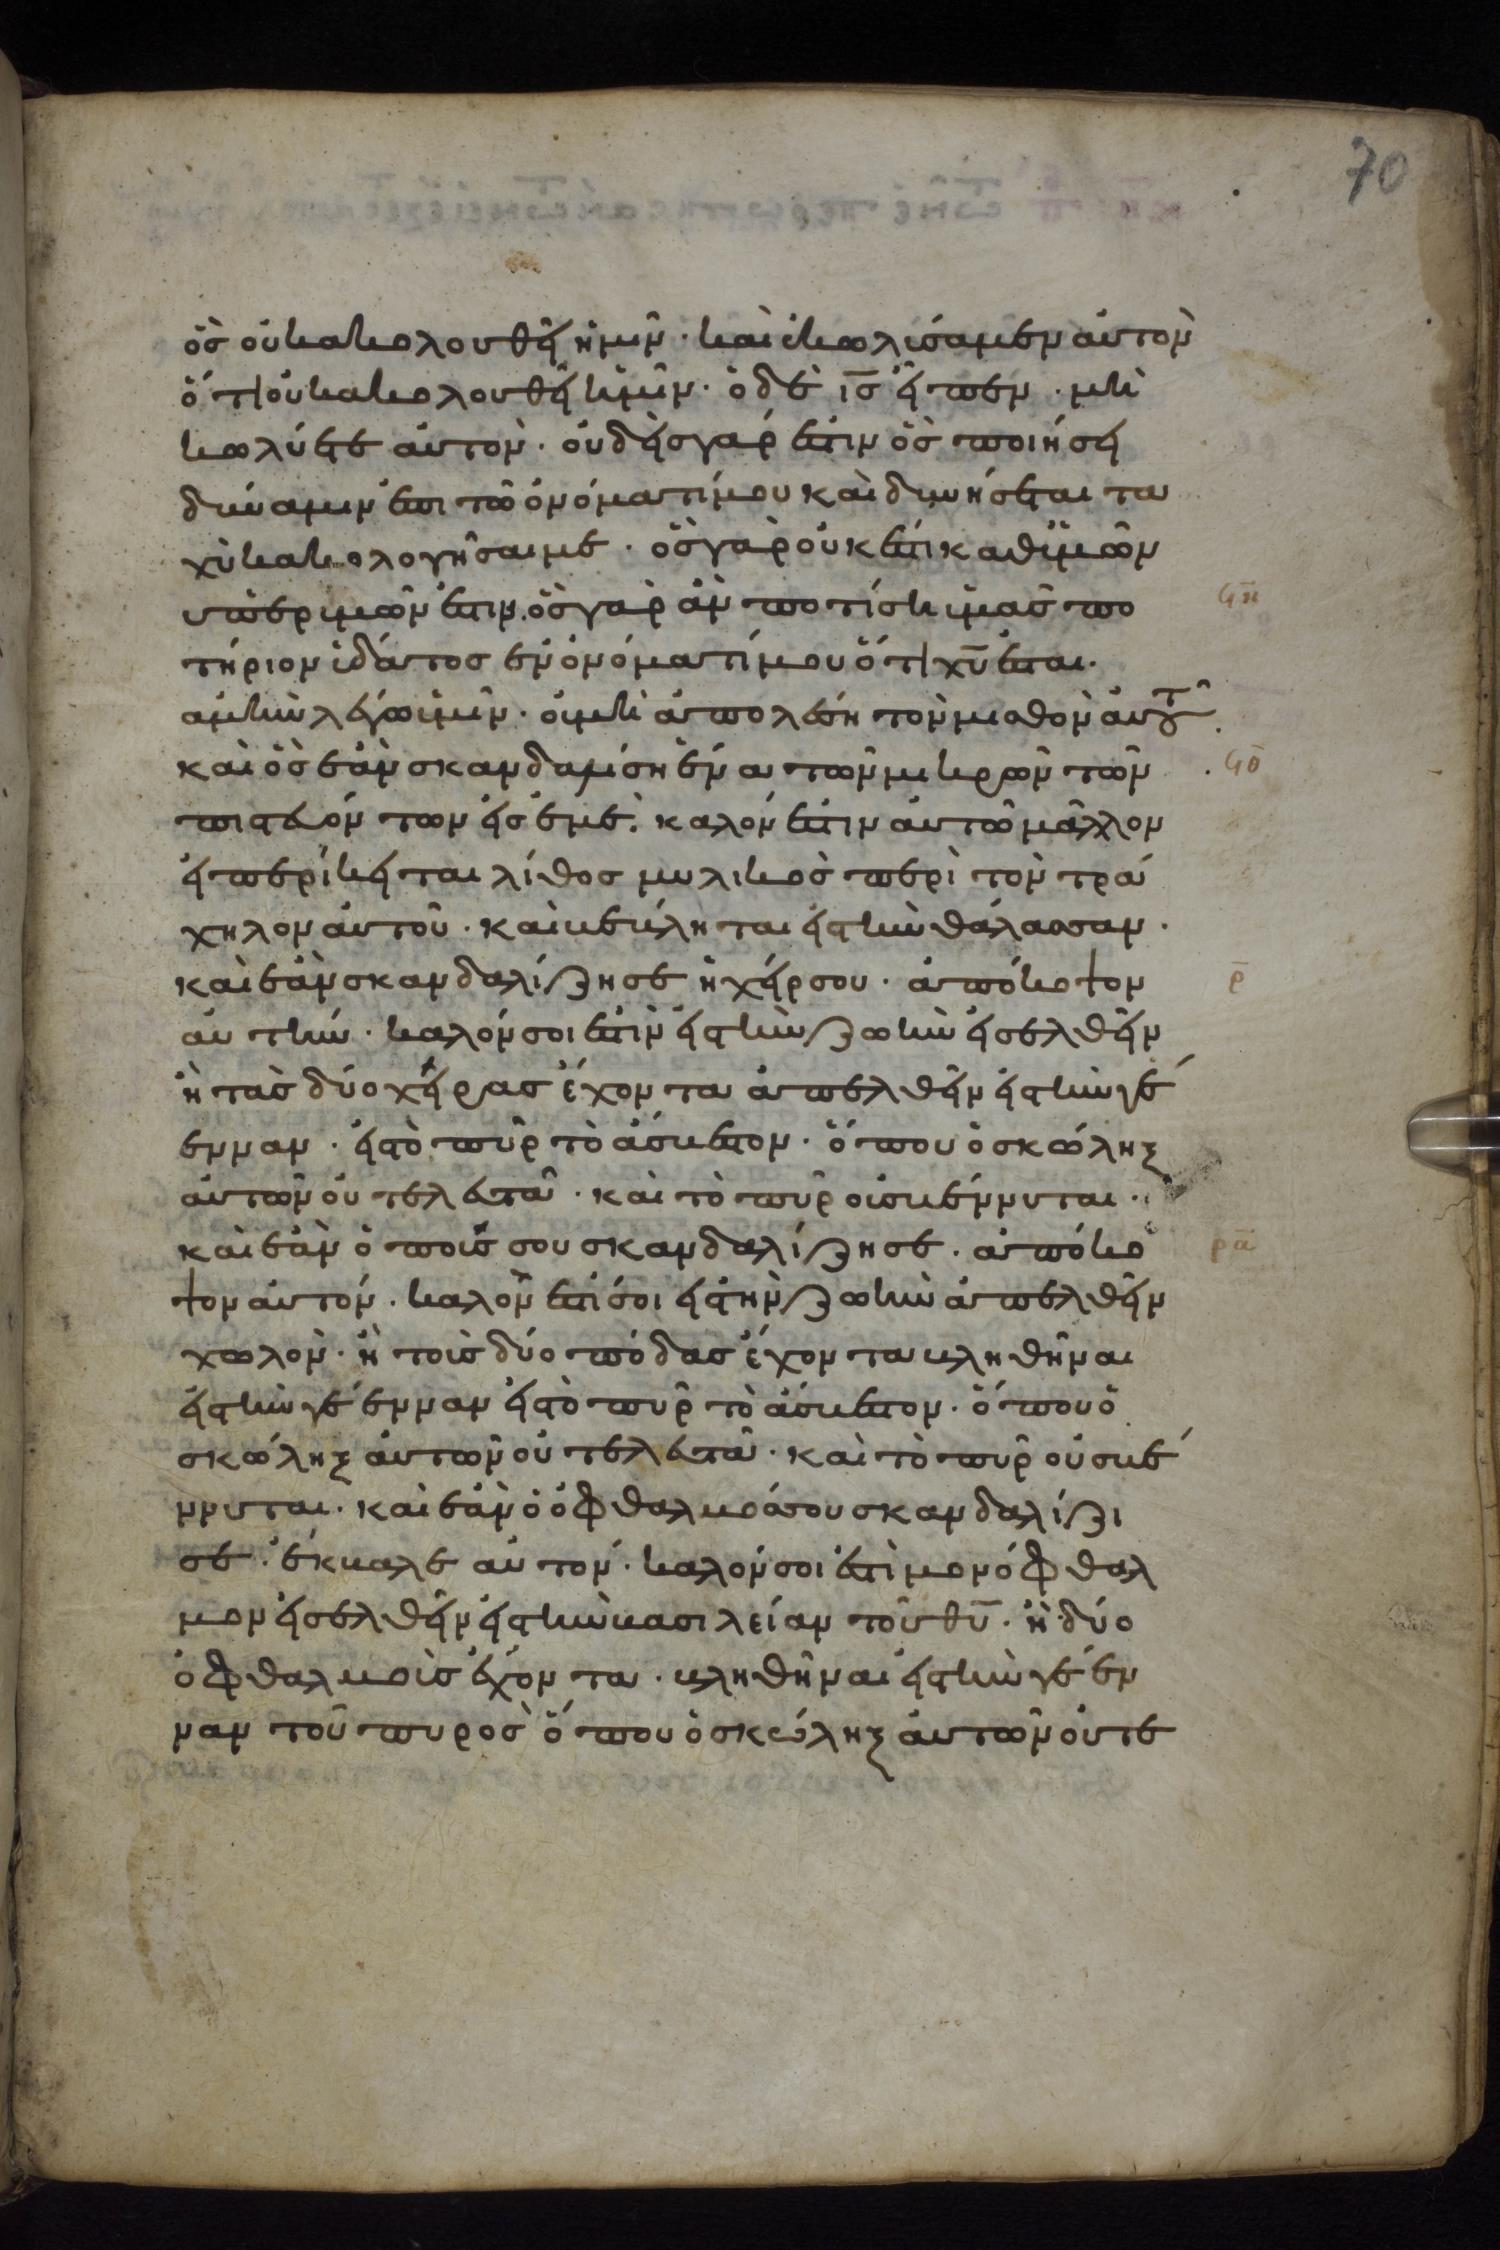 70
ὃς οὐκ ἀκολουθεῖ ἡμῖν· καὶ ἐκωλύσαμεν αὐτὸν
ὅτι οὐκ ἀκολουθεῖ ἡμῖν· ὁ δὲ ις̅ εἶπεν· μὴ
κωλύετε αὐτὸν· οὐδεὶς γάρ ἐστιν ὃς ποιήσει
δύναμιν ἐπι τῶ ὀνόματί μου καὶ δυνήσεται τα
χὺ κακολογῆσαι με· ὃς γὰρ οὐκ ἔστι καθ ἡμῶν
ὑπὲρ ἡμῶν ἐστιν. ὃς γὰρ ἂν ποτίση ὑμᾶς πο
τήριον ὕδατος ἐν ὀνόματί μου ὅτι χυ̅ ἐσται·
ἀμὴν λέγω ὑμῖν· οὐ μὴ ἀπολέση τὸν μισθὸν αὐτοῦ.
καὶ ὃς ἐὰν σκανδαλίση ἕνα τῶν μικρῶν τῶν
πιστευόν των εἰς ἐμέ· καλόν ἐστιν αὐτῶ μᾶλλον
εἰ περίκειται λίθος μυλικὸς περὶ τὸν τρά
χηλον αὐτοῦ· καὶ βέβληται εἰς τὴν θάλασσαν·
καὶ ἐὰν σκανδαλίζησε ἡ χείρ σου· ἀπόκοψον
αὐ τήν· καλόν σοι ἐστὶν εἰς τὴν ζωὴν εἰσελθεῖν
ἢ τὰς δύο χεῖρας ἔχοντα ἀπελθεῖν εἰς τὴν γέ
ενναν· εἰς τὸ πῦρ τὸ ἄσβεστον· ὅπου ὁ σκώληξ
αὐτῶν οὐ τελευτᾶ· καὶ τὸ πῦρ οὐ σβέννυται·
καὶ ἐὰν ὁ ποῦς σου σκανδαλίζησε· ἀπόκο
ψον αὐτόν· καλὸν ἐστί σοι εἰς τὴν ζωὴν ἀπελθεῖν
χωλὸν· ἢ τοὺς δύο πόδας ἔχοντα βληθῆναι
εἰς τὴν γέενναν εἰς τὸ πῦρ τὸ ἄσβεστον· ὅπου ὁ
σκώληξ αὐτῶν οὐ τελευτᾶ· καὶ τὸ πῦρ οὐ σβέ
ννυται· καὶ ἐὰν ὁ ὀφθαλμός σου σκανδαλίζι
σε· ἔκβαλε αὐτόν· καλόν σοι ἐστὶ μονόφθαλ
μον εἰσελθεῖν εἰς τὴν βασιλείαν τοῦ θυ̅· ἢ δύο
ὀφθαλμοὺς ἔχοντα· βληθῆναι εἰς τὴν γέεν
ναν τοῦ πυρος ὅπου ὁ σκώληξ αὐτῶν οὐ τε
ϟη̅
ϟθ̅
ρ̅
ρα̅